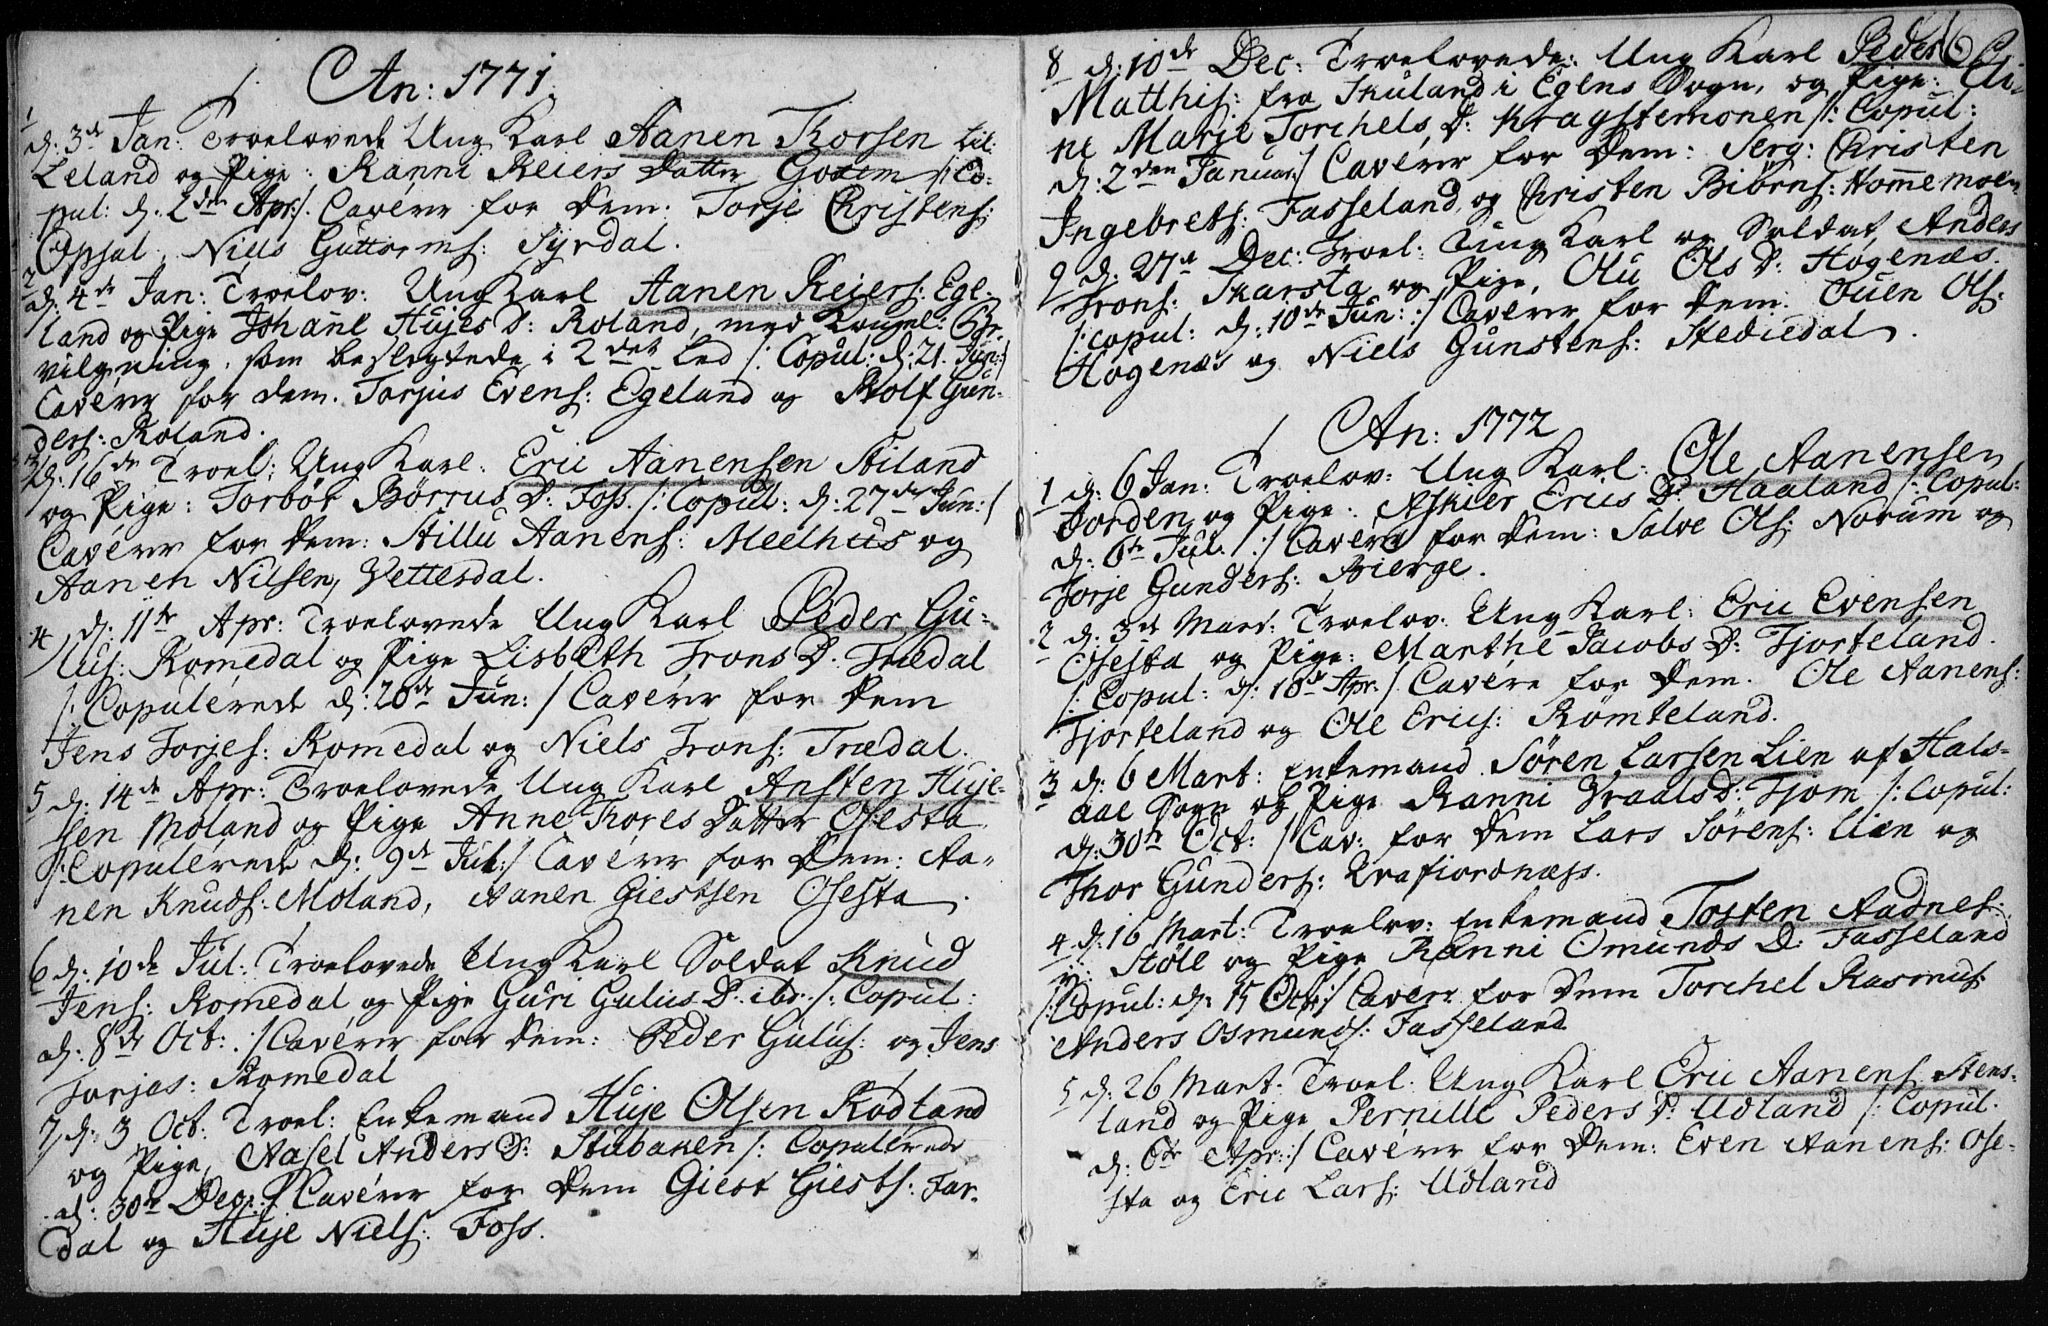 An: 1771.
1 d: 3de Jan: Troelovede Ung Karl Aanen Thorsen til:
Leland og Pige: Ranni Reiers Datter Godem /: Co:
pul: d. 2den Apr:/. Cavérer for Dem: Torje Christens:
Opsal, Niels Guttorms: Syrdal.
2 d: 4de Jan: Troelov: Ung Karl Aanen Reiers: Ege-
land og Pige Johañe Hujes D: Roland, med Kongel: Be-
vilgning, som beslegtede i 2det Led /: Copul: d: 21. Jun:/
Cavérer for dem. Torjus Evens: Egeland og Rolf Gun-
ders: Roland.
3 d: 16de Troel: Ung Karl: Eric Aanensen Stiland
og Pige: Torbør Børrus D: Foss. /: Copul: d: 27de Jun:/
Cavérer for Dem: Stillu Aanens: Meelhus og
Aanen Nilsen, Vetterdal.
4 d: 11te Apr: Troelovede Ung Karl Peder Gu-
lus: Romedal og Pige Lisbeth Trons D. Trædal
/: Copulerede d: 20de Jun: / Caverer for Dem
Jens Torjes: Romedal og Niels Trons: Trædal.
5 d: 14de Apr: Troelovede Ung Karl Ansten Huje-
sen Moland og Pige Anne Thores Datter Osesta
/: Copulerede d: 9de Jul:/ Cavérer for Dem: Aa-
nen Knuds: Moland, Aanen Giestsen Osesta.
6 d: 10de Jul: Troelovede Ung Karl Soldat Knud
Jens: Romedal, og Pige Guri Gulus D. ibr. /: Copul:
d: 8de Oct: :/ Cavérer for Dem: Peder Gulus: og Jens
Torjas: Romedal
7 d: 3 Oct: Troel: Enkemand Huje Olsen Rødland
og Pige, Aasel Anders D: Stubaken /: Copulerede
d: 30te Dec:/ Cavérer for Dem Giest Giests: Far-
dal og Huje Niels: Foss.
6
8 d: 10de Dec: Troelovede: Ung Karl Peder
Matthis: fra Skuland i Egens Sogn, og Pige: Ai-
ne Marje Torchels D: Kragstemonen /: Copul:
d: 2den Januar:/ Cavérer for Dem: Serg: Christen
Ingebrets: Fasseland, og Christen Biørns: Hommemoen
9 d: 27de Dec: Troel: Ung Karl og Soldat Anders
Trons: Skarsta og Pige, Olu Ols D: Høgenæs.
/: copul: d: 10de Jun: :/ Caverer for Dem: Ouen Ols:
Høgenæs og Niels Gunstens: Stediedal.
An: 1772
1 d: 6 Jan: Troelov: Ung Karl: Ole Aanensen
Jorden og Pige: Askier Erics D: Haaland /: Copul:
d: 6te Jul. :/ Cavérer for Dem: Salve Ols: Norum og
Torje Gunders: Bierge.
2 d: 3de Mart: Troelov: Ung Karl: Eric Evensen
Osesta og Pige: Marthe Jacobs D: Fjorteland.
/: Copul: d: 10de Apr:/ Cavére for Dem. Ole Aanens:
Fjorteland og Ole Erics: Romteland.
3 d: 6 Mart: Enkemand Søren Larsen Lien af Hals-
aae Sogn og Pige Ranni Vraals D: Fjom /: Copul:
d: 30te Oct: / Cav: for Dem Lars Sørens: Lien og
Thor Gunders: Trafiordnæss.
4 d: 16 Mart: Troelov: Enkemand Tosten Aadnes:
y: Støle og Pige Ranni Omunds D: Fasseland
/: Copul: d: 15 Oct:/ Caverer for Dem Torchel Rasmus:
Anders Osmunds: Fasseland
5 d: 26 Mart: Troel: Ung Karl Eric Aanens: Stens-
land og Pige Pernille Peders D: Udland /: Copul.
d: 6te Apr:/ Cavérer for Dem: Even Aanens: Ose-
sta og Eric Lars: Udland